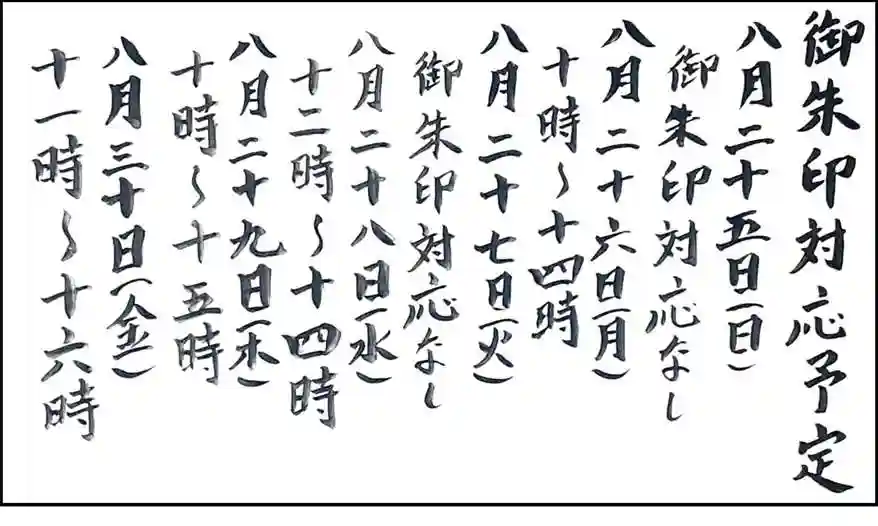 御朱印対応予定
八月二十五日(日)
御朱印対応なし
八月二十六日(月)
十時~十四時
八月二十七日(火)
御朱印対応なし
八月二十八日(水)
十二時~十四時
八月二十九日(木)
十時~十五時
八月三十日(金)
十一時~十六時